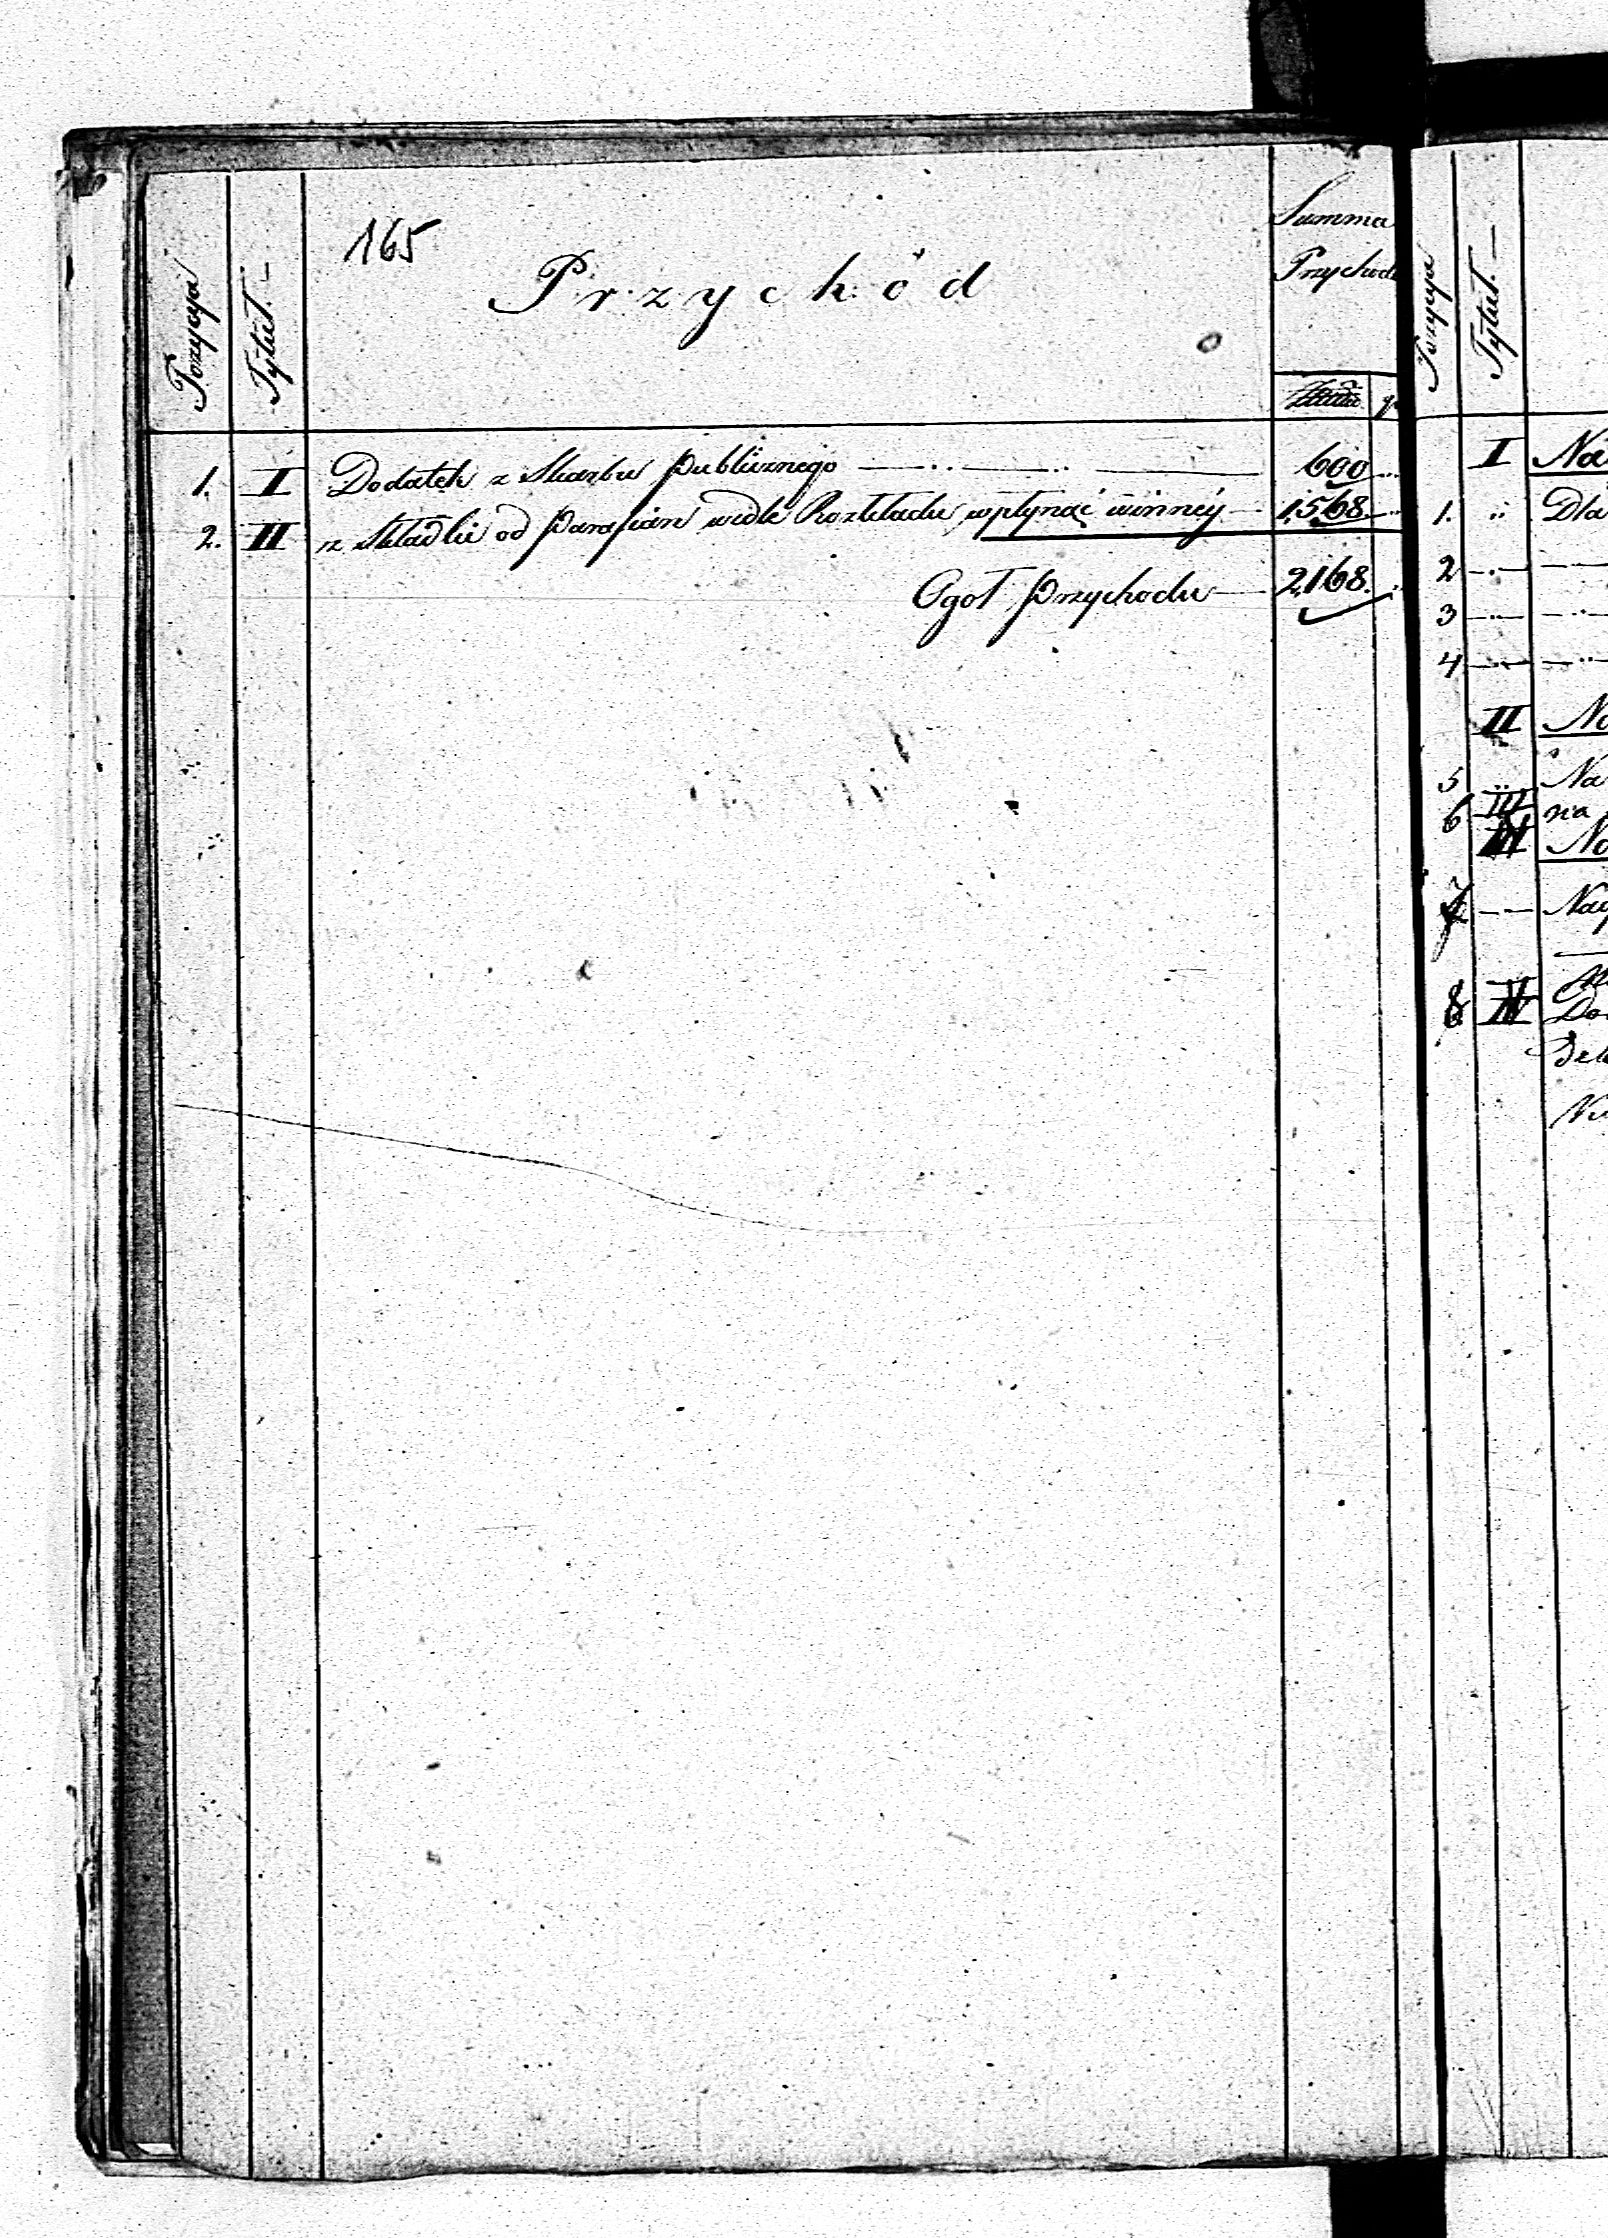 165
Pozycya
Tytuł.
Przychód
Summa
Przychod
1. I Dodatek z Skarbu publicznego 600
2. II z składki od parafian wedle Rozkładu wpłynąć winney 1,568
Ogoł przychodu 2,168.
Pozycya
Tytuł.
I
1. Dla
2
3
4
II
5 Na
6 III na
7
8 IV